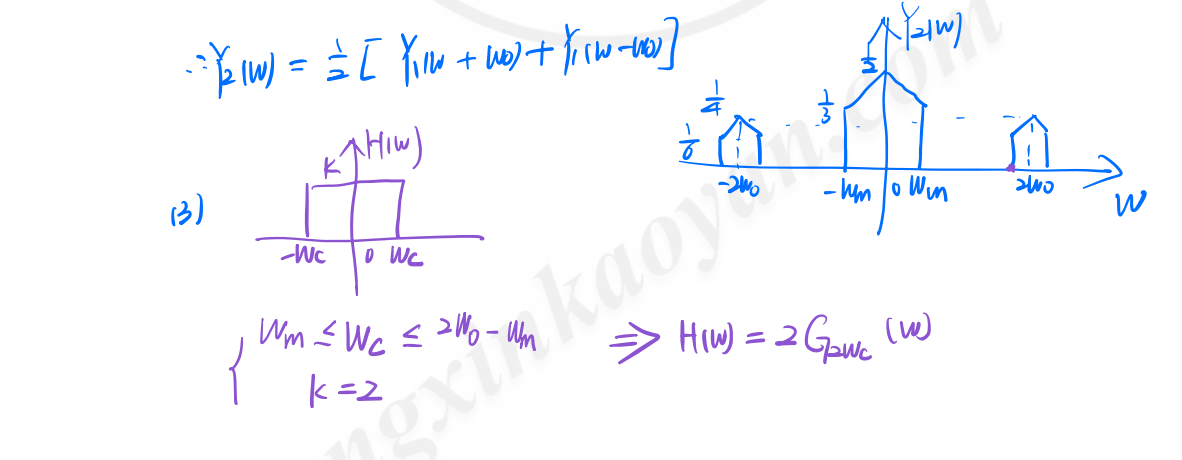 ∴ Y₂(w) = 1/2 [ Y₁(w + w0) + Y₁(w - w0) ]
Y₂(w)
1/2
1/4
1/3
1/6
-2w0 -wm 0 wm 2w0 w
H(w)
K
(3)
-wc 0 wc
wm ≤ wc ≤ 2w0 - wm ⇒ H(w) = 2G₂wc (w)
K = 2
ngxinkaoyan.com